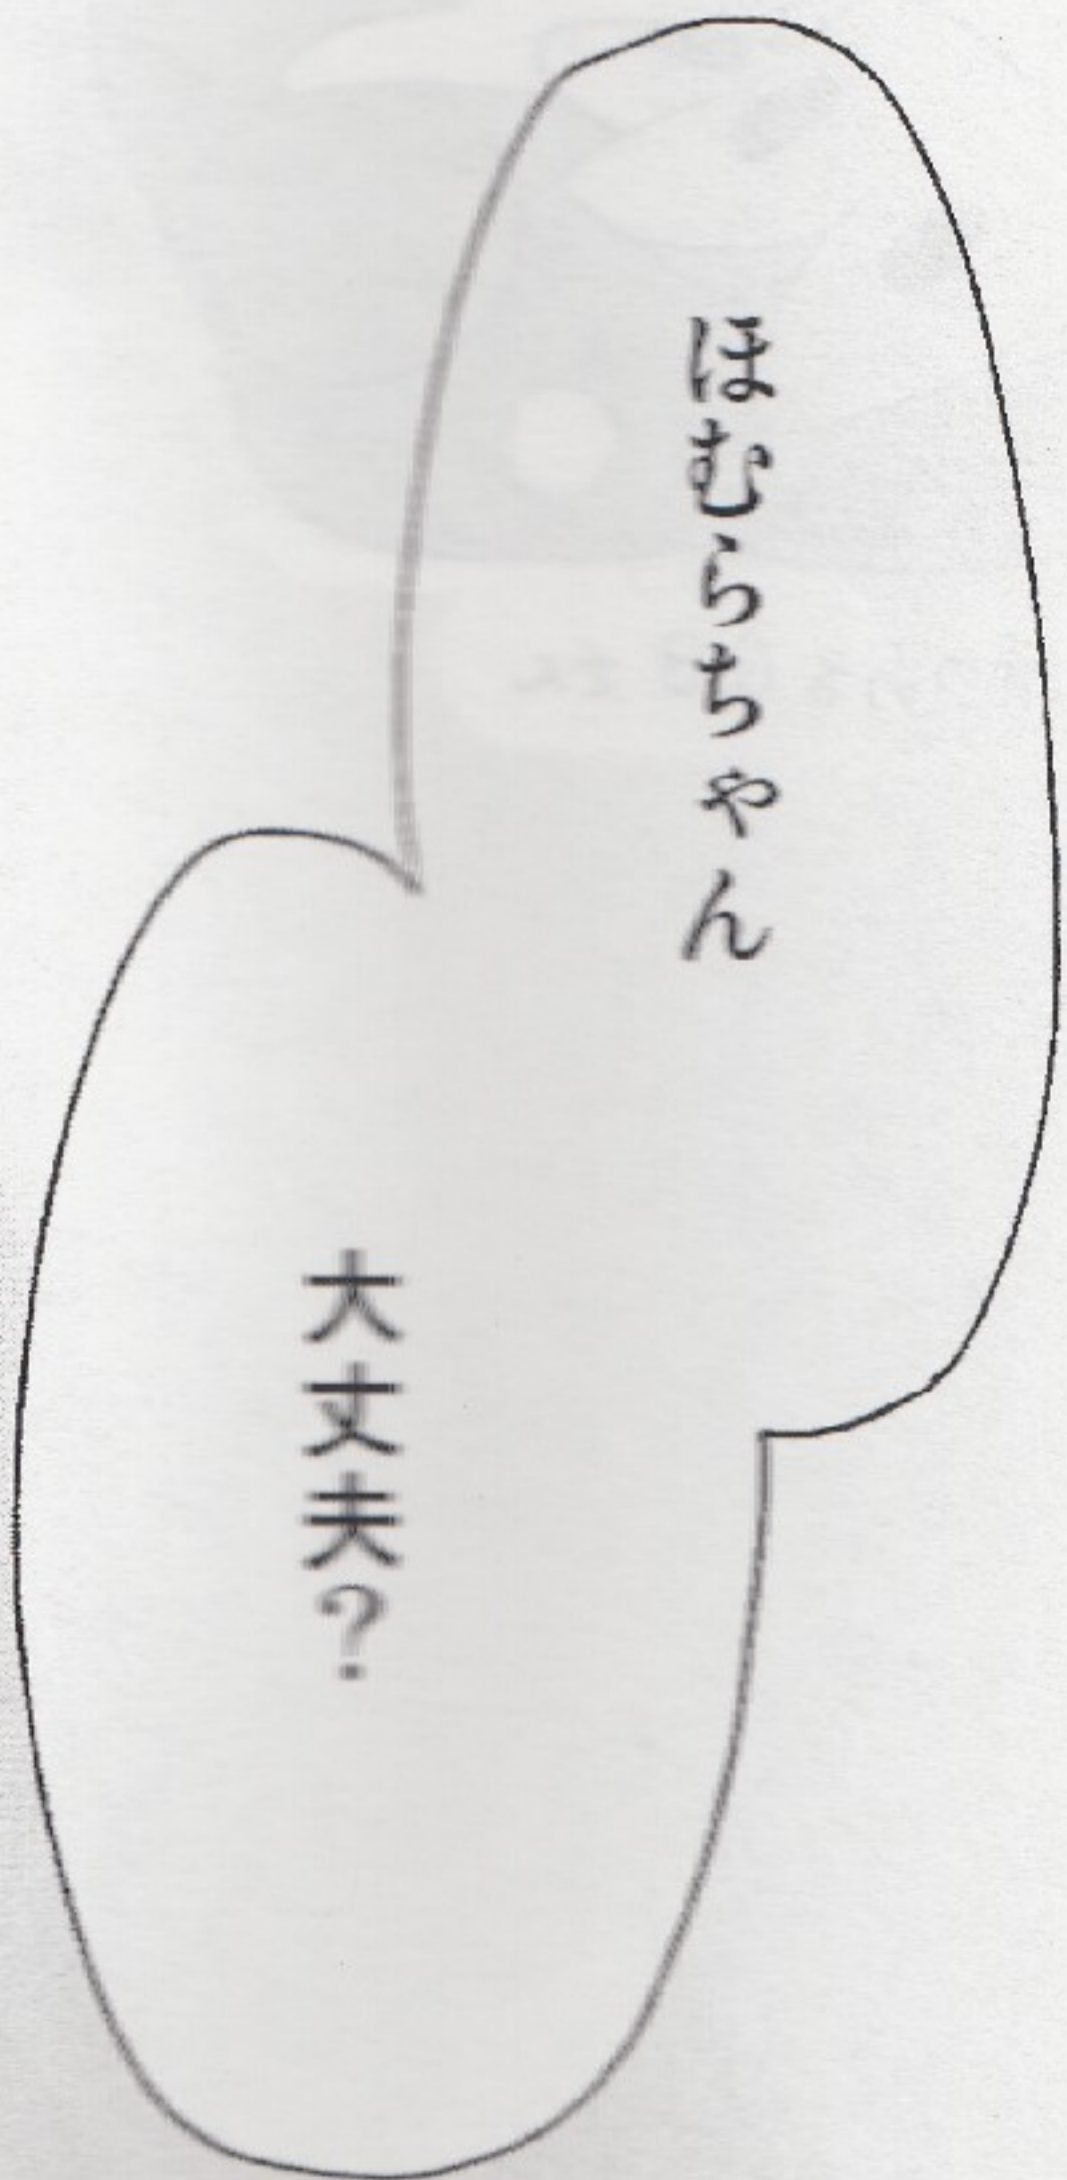 ほむらちゃん
大丈夫?